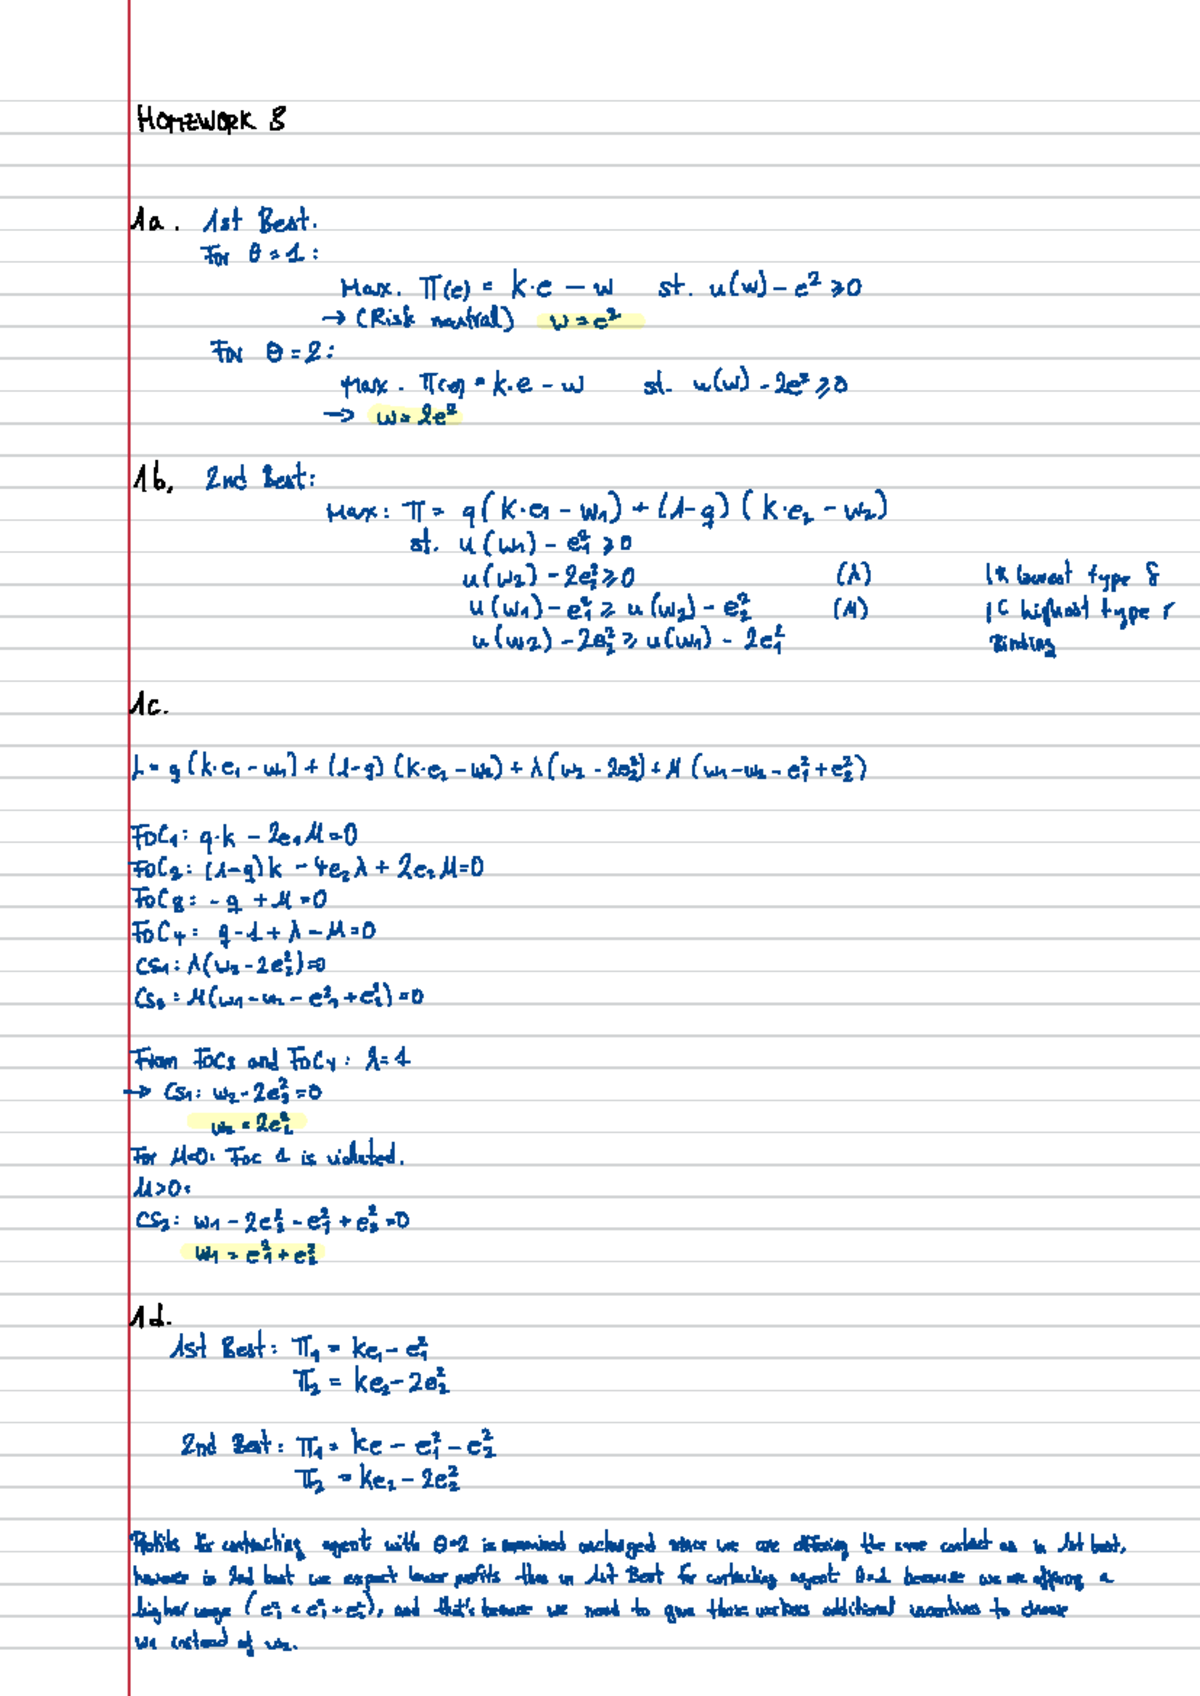 HOMEWORK 3
1a. 1st Best.
For θ=1:
Max. Π(e) = k·e − w st. u(w) − e² ≥0
→ (Risk neutral) w=e²
For θ=2:
Max. Π(e) = k·e − w st. u(w) − 2e² ≥0
→ w=2e²
1b, 2nd Best:
Max: Π= q(k·e₁ − w₁) + (1−q) (k·e₂ − w₂)
st. u(w₁) − e₁² ≥0
u(w₂) − 2e₂² ≥0 (λ) IR lowest type &
u(w₁) − e₁² ≥ u(w₂) − e₂² (M) IC highest type r
u(w2) − 2e₂² ≥ u(w₁) − 2e₁² Binding
1c.
L= q(k·e₁ − w₁) + (1−q) (k·e₂ − w₂) + λ(w₂ − 2e₂²) + M (w₁−w₂ − e₁² + e₂²)
FOC₁: q·k − 2e₁M=0
FOC₂: (1−q)k − 4e₂λ + 2e₂M=0
FOC₃: −q + M=0
FOC₄: q−1+λ−M=0
CS₁: λ(w₂−2e₂²)=0
CS₂: M(w₁−w₂−e₁²+e₂²)=0
From FOC₃ and FOC₄: λ=1
→ CS₁: w₂−2e₂²=0
w₂=2e₂²
For M=0: FOC 1 is violated.
M>0:
CS₂: w₁ − 2e₂² − e₁² + e₂²=0
w₁ = e₁² + e₂²
1d.
1st Best: Π₁ = ke₁ − e₁²
Π₂ = ke₂ − 2e₂²
2nd Best: Π₁ = ke − e₁² − e₂²
Π₂ = ke₂ − 2e₂²
Profits for contracting agent with θ=2 is unchanged since we are offering the same contract as in 1st best,
however in 2nd best we expect lower profits than in 1st Best for contracting agent θ=1 because we are offering a
higher wage (e₁² < e₁²+e₂²), and that's because we need to give those workers additional incentives to choose
w₁ instead of w₂.